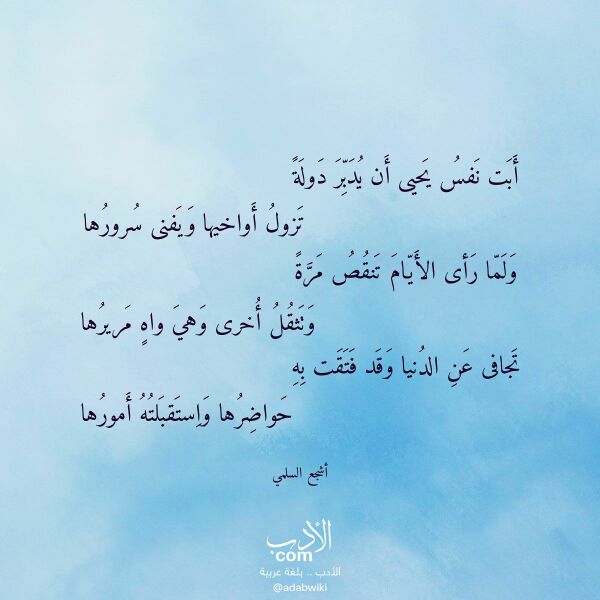 أَبَت نَفسُ يَحيى أَن يُدَبِّرَ دَولَةً
تَزولُ أَواخيها وَيَفنى سُرورُها
وَلَمّا رَأى الأَيّامَ تَنقُصُ مَرَّةً
وَتَثقُلُ أُخرى وَهيَ واهٍ مَريرُها
تَجافى عَنِ الدُنيا وَقَد فَتَقَت بِهِ
حَواضِرُها وَاِستَقبَلتُهُ أَمورُها
أشجع السلمي
الأدب
com
الأدب .. بلغة عربية
@adabwiki